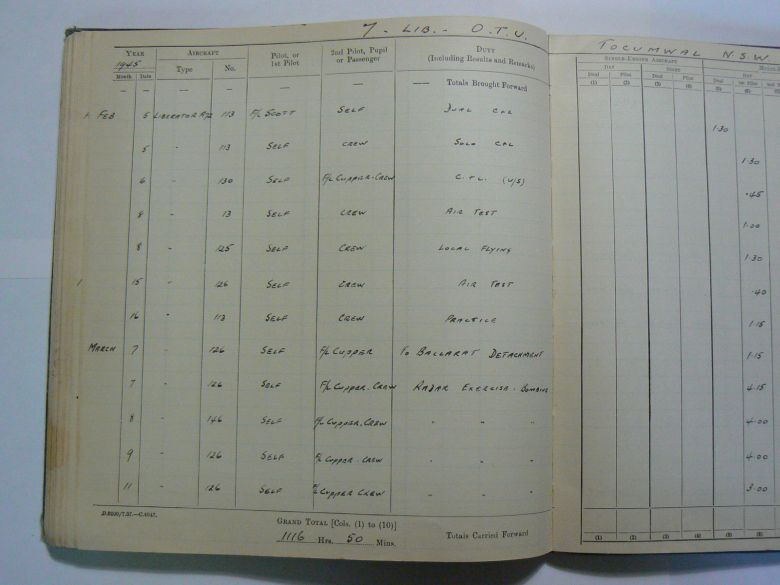 7 - LIB. - O.T.U.
TOCUMWAL N.S.W
YEAR AIRCRAFT Pilot, or 2nd Pilot, Pupil DUTY SINGLE-ENGINE AIRCRAFT
1945 1st Pilot or Passenger (Including Results and Remarks) DAY NIGHT DAY
Month Date Type No. Dual Pilot Dual Pilot Dual 1st Pilot
(1) (2) (3) (4) (5) (6)
— — — — — — — Totals Brought Forward
FEB 5 LIBERATOR 113 F/L SCOTT SELF DUAL C&L 1.30
5 " 113 SELF CREW SOLO C&L 1.30
6 " 130 SELF F/L CUPPER-CREW C.&L. (U/S) .45
8 " 13 SELF CREW AIR TEST 1.00
8 " 125 SELF CREW LOCAL FLYING 1.30
15 " 126 SELF CREW AIR TEST .40
16 " 113 SELF CREW PRACTICE 1.15
MARCH 7 " 126 SELF F/L CUPPER TO BALLARAT DETACHMENT 1.15
7 " 126 SELF F/L CUPPER-CREW RADAR EXERCISE - BOMBING 4.15
8 " 146 SELF F/L CUPPER-CREW " " " 4.00
9 " 126 SELF F/L CUPPER-CREW " " " 4.00
11 " 126 SELF F/L CUPPER CREW " " " 3.00
GRAND TOTAL [Cols. (1) to (10)]
1116 Hrs. 50 Mins. Totals Carried Forward
(1) (2) (3) (4) (5) (6)